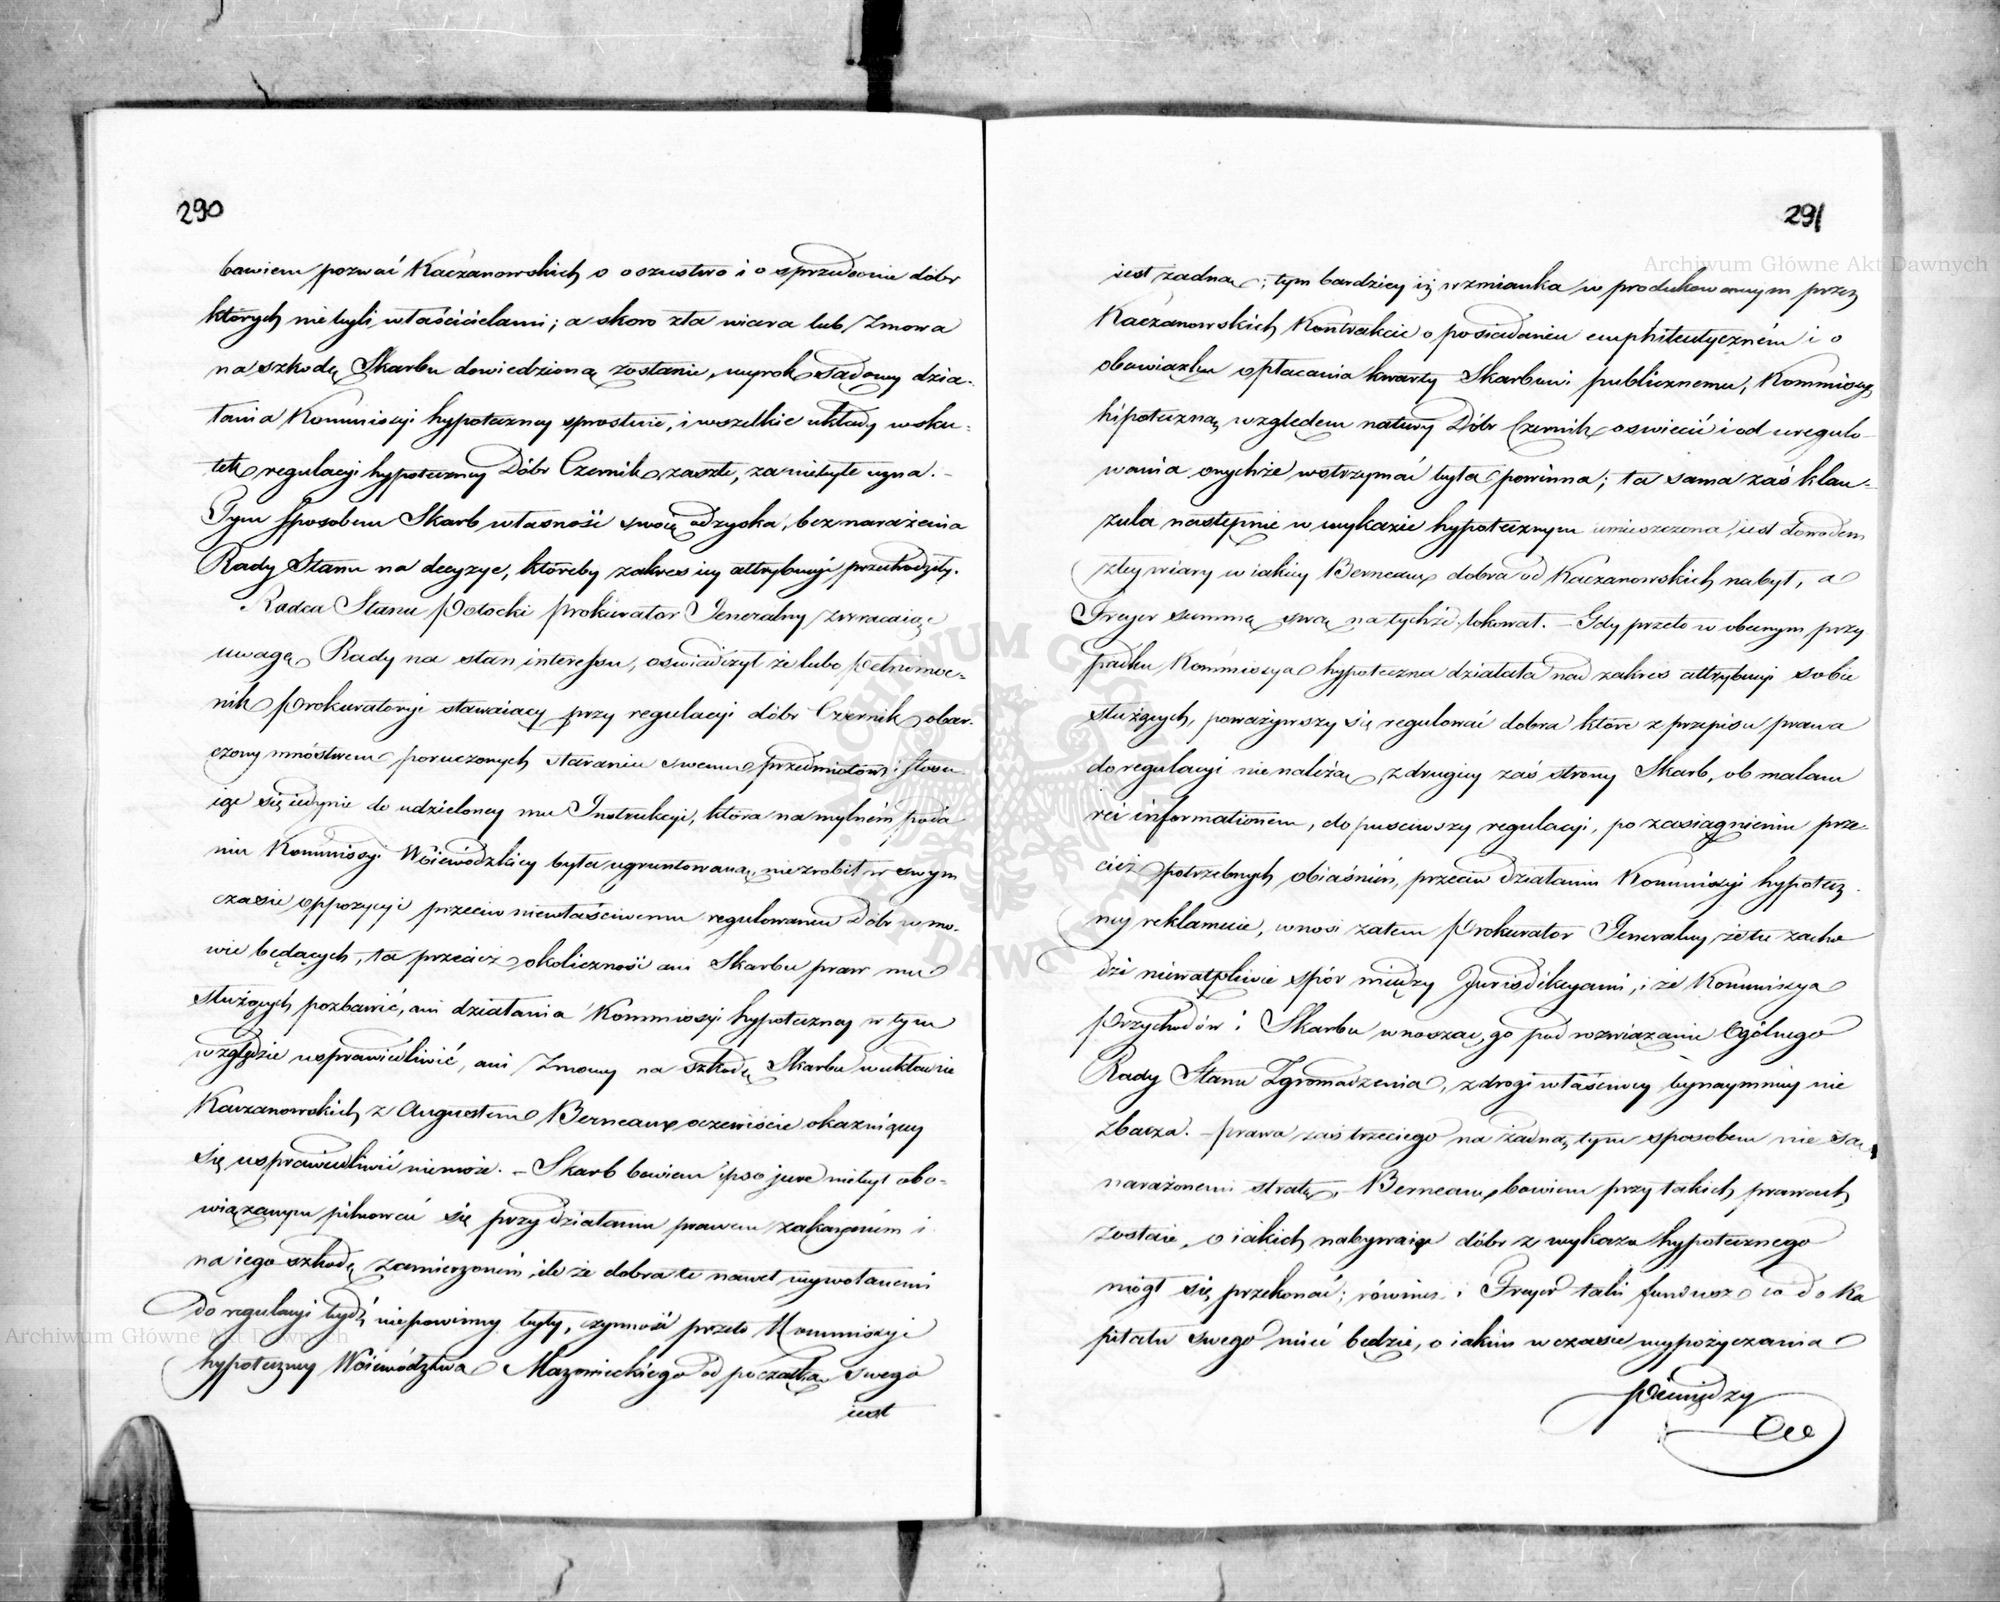 290
bowiem pozwać Kaczanowskich o oszustwo i o sprzedanie dóbr
których niebyli właścicielami; a skoro zła wiara lub Zmowa
na szkodę Skarbu dowiedzioną zostanie, wyrok sądowy dzia-
łania Kommissyi hypoteczney sprostuie, i wszelkie układy wsku-
tek regulacyi hypoteczney Dóbr Czernik zaszłe, za niebyłe uzna. -
Tym sposobem Skarb własność swoię odzyska, bez narażenia
Rady Stanu na decyzye, któreby zakres iey attrybucyi przechodziły.
Radca Stanu Potocki Prokurator Jeneralny zwracaiąc
uwagę Rady na stan interessu, oświadczył że lubo Pełnomoc-
nik Prokuratoryi stawaiący przy regulacyi dóbr Czernik obar-
czony mnóstwem poruczonych staraniu swemu przedmiotów i stosu-
iąc się iedynie do udzieloney mu Instrukcyi, która na mylném poda
niu Kommissyi Woiewódzkiey była ugruntowaną, niezrobił w swym
czasie oppozycyi przeciw niewłaściwemu regulowaniu Dóbr w mo-
wie będących, ta przecież okoliczność ani Skarbu praw mu
służących pozbawić, ani działania Kommissyi hypoteczney w tym
względzie usprawiedliwić, ani Zmowy na szkodę Skarbu w układzie
Kaczanowskich z Augustem Berneaux oczewiście okazuiącey
się usprawiedliwić niemoże. - Skarb bowiem ipso jure niebył obo-
wiązanym pilnować się przy działaniu prawem zakazaném i
na iego szkodę zamierzoném, ile że dobra te nawet wywołanemi
do regulacyi bydź niepowinny były, czynność przeto Kommissyi
hypoteczney Woiewództwa Mazowieckiego od początku swego
iest
291
iest żadną; tym bardziey iż wzmianka w produkowanym przez
Kaczanowskich Kontrakcie o posiadaniu emphiteutyczném i o
obowiązku opłacania kwarty Skarbowi publicznemu, Kommissyą
hipoteczną względem natury Dóbr Czernik oświecić i od uregulo-
wania onychże wstrzymać była powinna; ta sama zaś klau-
zula następnie w wykazie hypotecznym umieszczona, iest dowodem
złey wiary w iakiey Berneaux dobra od Kaczanowskich nabył, a
Freyer summę swą na tychże lokował. - Gdy przeto w obecnym przy
padku Kommissya hypoteczna działała nad zakres attrybucyi sobie
służących, poważywszy się regulować dobra które z przepisu prawa
do regulacyi nienależą, z drugiey zaś strony Skarb, ob malam
rei informationem, dopuściwszy regulacyi, po zasiągnieniu prze-
cież potrzebnych obiaśnień, przeciw działaniu Kommissyi hypotecz-
ney reklamuie, wnosi zatem Prokurator Jeneralny że tu zacho
dzi niewątpliwie spór między Jurisdikcyami, i że Kommissya
Przychodów i Skarbu wnosząc go pod rozwiązanie Ogólnego
Rady Stanu Zgromadzenia, z drogi właściwey bynaymniey nie
zbacza. - Prawa zaś trzeciego na żadną tym sposobem nie są
narażonemi stratę. Berneaux bowiem przy takich prawach
zostaie, o iakich nabywaiąc dóbr z wykazu hypotecznego
mógł się przekonać; również i Freyer taki fundusz co do Ka
pitału swego mieć będzie, o iakim w czasie wypożyczania
pieniędzy